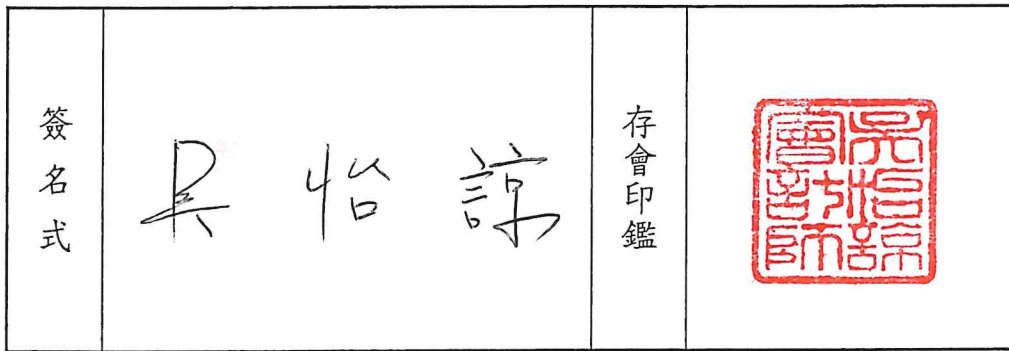 簽名式
吳怡諒
存會印鑑
吳怡諒
會計師